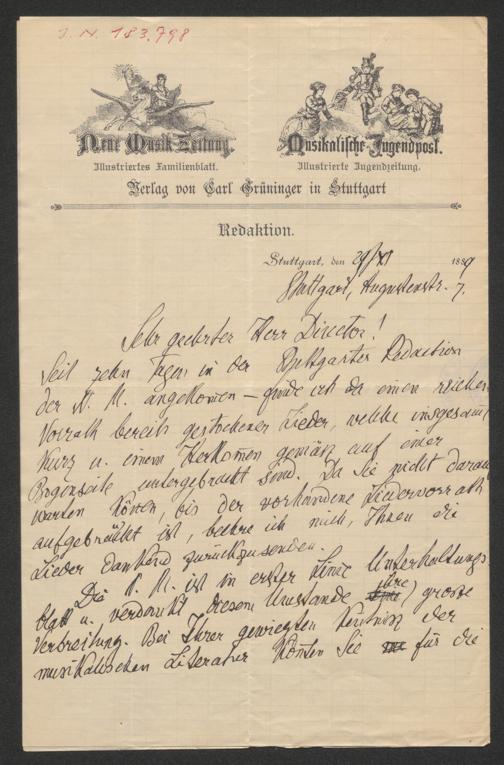 J. N. 183.798
Neue Musik-Zeitung.
Illustriertes Familienblatt.
Musikalische Jugendpost.
Illustrierte Jugendzeitung.
Verlag von Carl Grüninger in Stuttgart
Redaktion.
Stuttgart, den 29/XI 1889
Stuttgart, Augustenstr. 7.
Sehr geehrter Herr Director!
Seit zehn Tagen in der Stuttgarter Redaction
der N. M. angekomen – finde ich da einen reichen
Vorrath bereits gestochener Lieder, welche insgesamt
kurz u. einem Herkomen gemäß auf einer
Bogenseite untergebracht sind. Da Sie nicht darauf
warten könen, bis der vorhandene Liedervorrath
aufgebraucht ist, beehre ich mich, Ihnen die
Lieder dankend zurückzusenden.
Die N. M. ist in erster Linie Unterhaltungs-
blatt u. verdankt diesem Umstande ihre große
Verbreitung. Bei Ihrer gewiegten Kentniß der
musikalischen Literatur könten Sie für die